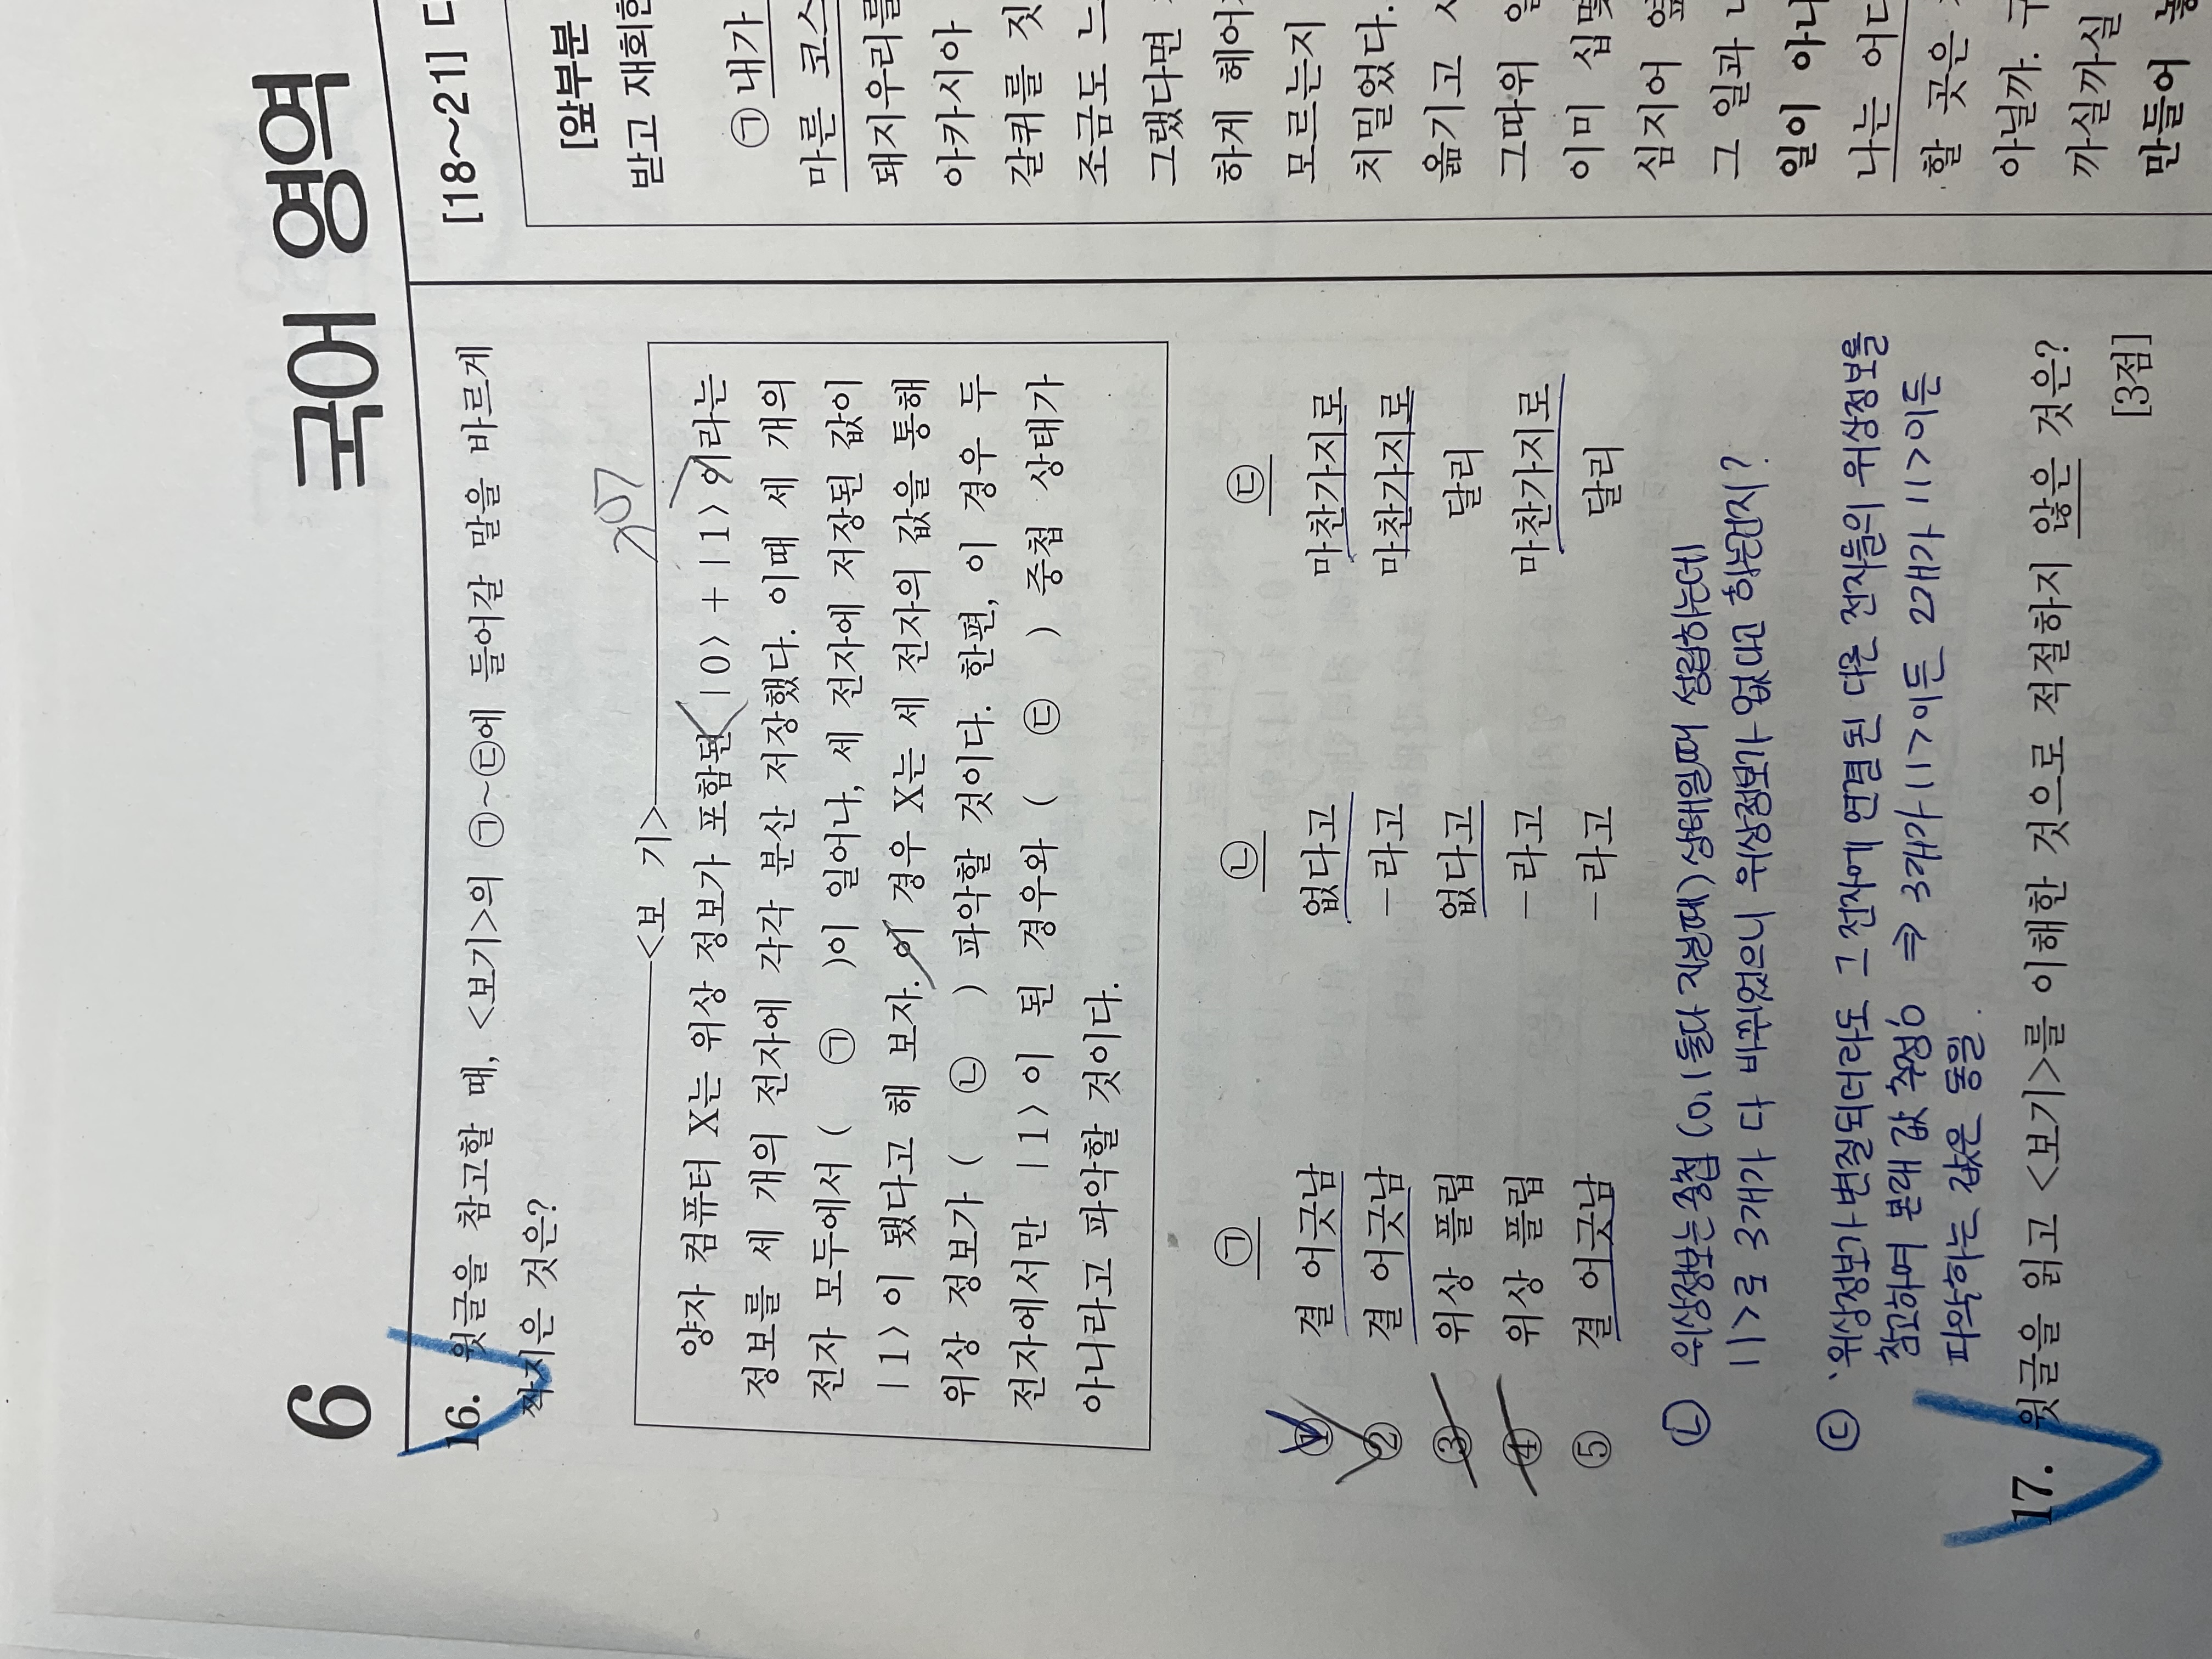 6
국어 영역
16. 윗글을 참고할 때, <보기>의 ㉠~㉢에 들어갈 말을 바르게
짝지은 것은?
<보 기>
양자 컴퓨터 X는 위상 정보가 포함된 |0> + |1>이라는
정보를 세 개의 전자에 각각 분산 저장했다. 이때 세 개의
전자 모두에서 ( ㉠ )이 일어나, 세 전자에 저장된 값이
|1>이 됐다고 해 보자. 이 경우 X는 세 전자의 값을 통해
위상 정보가 ( ㉡ ) 파악할 것이다. 한편, 이 경우 두
전자에서만 |1>이 된 경우와 ( ㉢ ) 중첩 상태가
아니라고 파악할 것이다.
㉠ ㉡ ㉢
① 결 어긋남 없다고 마찬가지로
② 결 어긋남 -라고 마찬가지로
③ 위상 플립 없다고 달리
④ 위상 플립 -라고 마찬가지로
⑤ 결 어긋남 -라고 달리
㉡ 위상정보는 중첩 (0,1 둘다 지닌때) 상태일때 성립하는데
|1>로 3개가 다 바뀌었으니 위상정보가 없다고 하는건지?
㉢ 위상정보가 변질되더라도 그 전자에 연결된 다른 전자들의 위상정보를
참고하며 본래 값 추정 ⇒ 3개가 |1>이든 2개가 |1>이든
파악하는 값은 동일.
17. 윗글을 읽고 <보기>를 이해한 것으로 적절하지 않은 것은?
[3점]
[18~21] 다
[앞부분
받고 재회한
㉠ 내가
마른 코스
돼지우리를
아카시아
갈퀴를 짓
조금도 느
그랬다면
하게 헤어
모르는지
치밀었다.
옮기고
그따위
이미 십몇
심지어 옆
그 일과
일이 아니
나는 어디
할 곳은
아닐까. 구
까실까실
만들어 놓